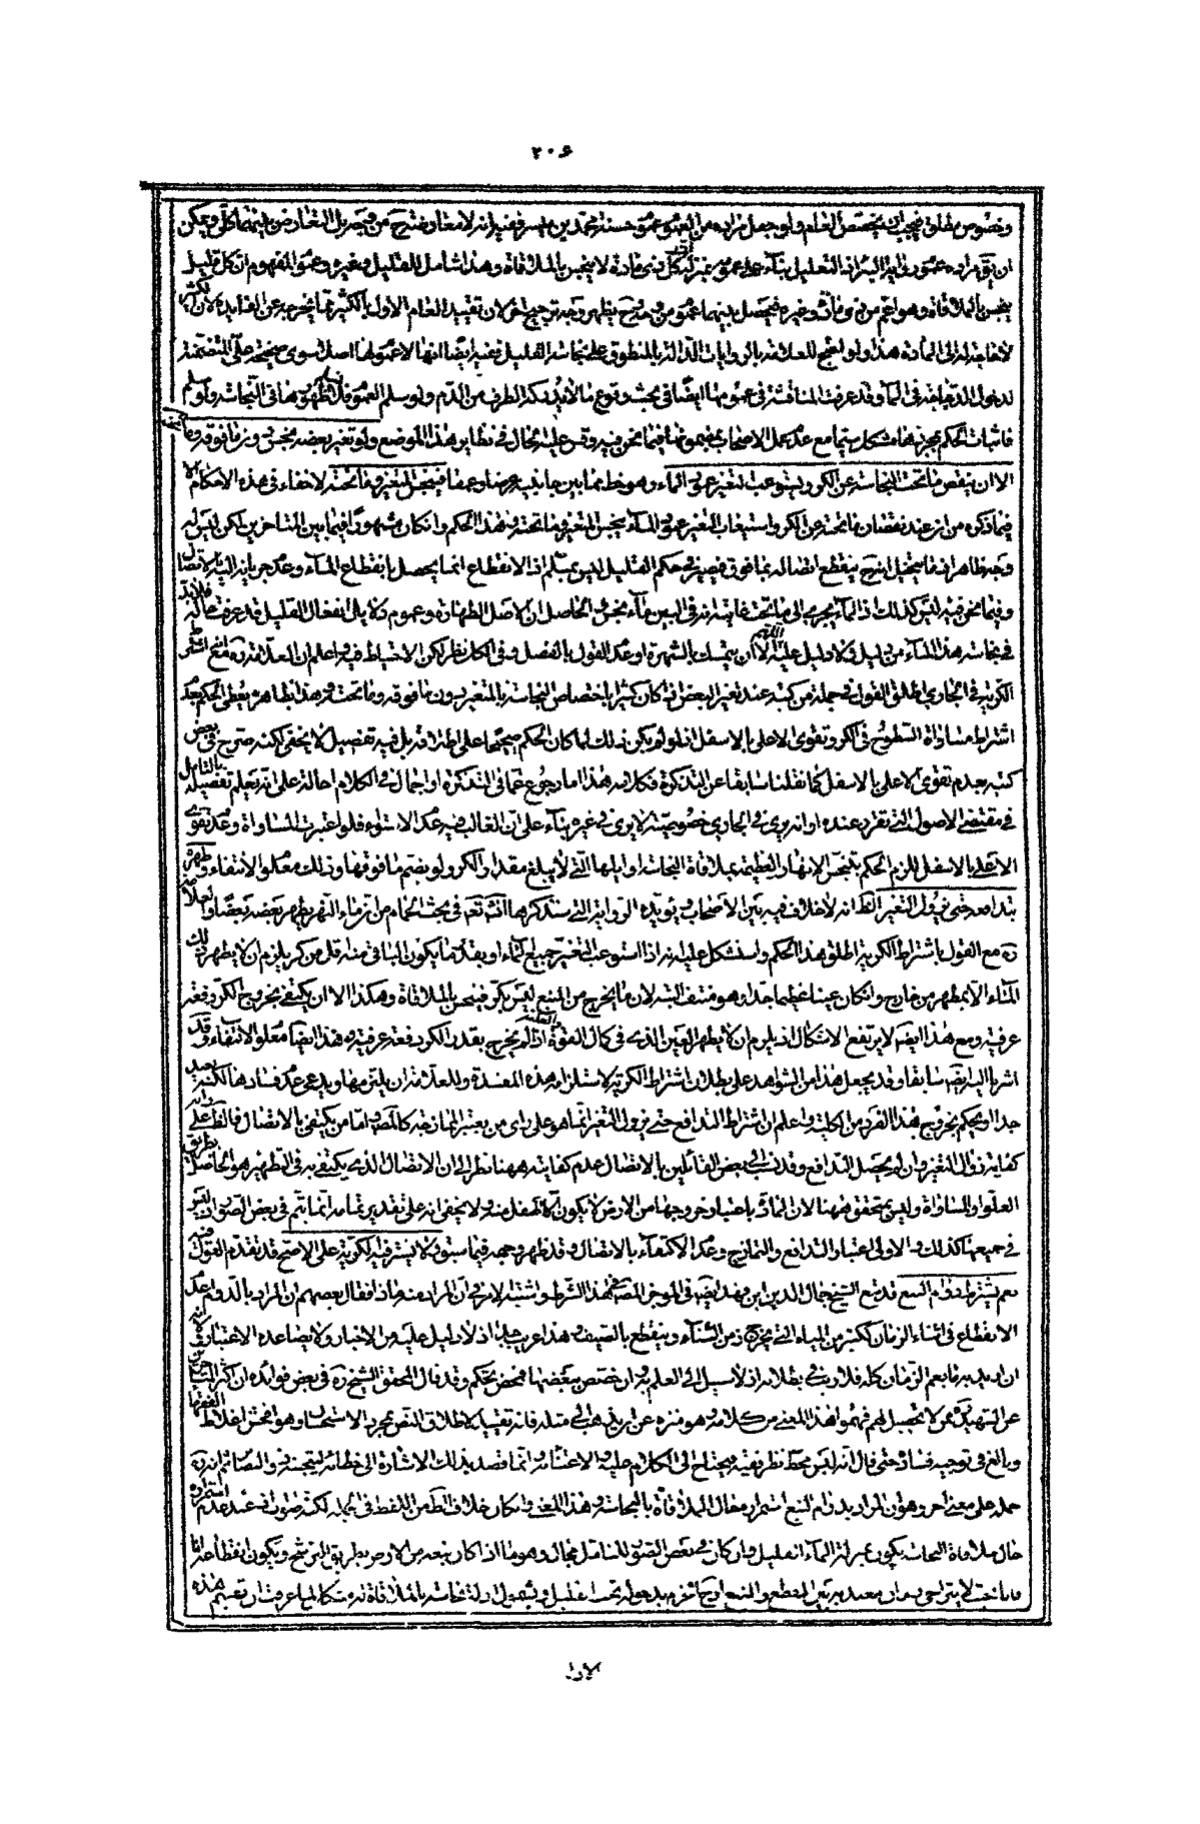 ٢٠۶
وخصوص مطلق فيجب ان يخصص العام ولو جعل مراده من العموم عموم حسنة محمد بن ميسر ففيه انه لا معارضة حَ من وجه بل التعارض بينهما كلى ويمكن
ان يق مراده عموم رواية البئر اذ التعليل بناء على عمومه بمنزلة كل ذى مادة لا ينجس بالملاقاة وهذا شامل للقليل وغيره وعموم المفهوم ان كل قليل
ينجس بالملاقاة وهو اعم من ذى مادة وغيره فيحصل بينهما عموم من وجه وحَ يظهر وجه ترجيح اخر لان تقييد العام الاول بالكثير مما يخرجه عن الفايدة لان الكثير
لا حاجة له الى المادة هذا ولو احتج للعلامة بالروايات الدالة بالمنطوق على نجاسة القليل ففيه ايضا انها لا عموم لها اصلا سوى صحيحة على المتضمنة
لدخول الدجاجة فى الماء وقد عرفت المناقشة فى عمومها ايضا فى بحث وقوع ما لا يدركه الطرف من الدم ولو سلم العموم فلا نسلم ظهورها فى النجاسة ولو سلم
فاثبات الحكم بمجردها مشكل سيما مع عدم عمل الاصحاب بمضمونها فيما نحن فيه وقس عليه الحال فى نظاير هذا الموضع ولو تغير بعضه نجس دون ما فوقه وما تحته
الا ان ينقص ما تحت النجاسة عن الكر ويستوعب التغير عمود الماء وهو خط ما بين جانبيه عرضا وعمقا فينجس المتغير وما تحته لا خفاء فى هذه الاحكام الا
فيما ذكره من انه عند نقصان ما تحته عن الكر واستيعاب التغير عمود الماء ينجس المتغير وما تحته وهذا الحكم وان كان مشهورا فيما بين المتاخرين لكن ليس له
وجه ظاهر اذ ما يتخيل انه حَ ينقطع اتصاله بما فوق فيصير فى حكم القليل ليس بمسلم اذ الانقطاع انما يحصل بانقطاع الماء وعدم جريانه اليه لا اتصال
وفيما نحن فيه ليس كذلك اذ الماء يجرى الى ما تحت غايته انه فى البين ماء نجس والحاصل ان الاصل الطهارة وعموم دلايل انفعال القليل قد عرفت حاله فلابد
فى نجاسة هذا الماء من دليل ولا دليل عليه اللهم الا ان يتمسك بالشهرة او عدم القول بالفصل وفى الكل نظر لكن الاحتياط فيه واعلم ان العلامة ره مع اشتراطه
الكرية فى الجارى اطلق القول فى جملة من كتبه عند تغير البعض اذا كان كثيرا باختصاص النجاسة بالمتغير دون ما فوقه وما تحت وهذا بظاهره يعطى الحكم بعدم
اشتراط مساواة السطوح فى الكر وتقوى الاعلى بالاسفل اذ لو لم يكن ذلك لما كان الحكم صحيحا على اطلاقه بل فيه تفصيل لا يخفى لكنه صرح فى بعض
كتبه بعدم تقوى الاعلى بالاسفل كما نقلنا سابقا عن التذكرة فكلامه هذا اما رجوع عما فى التذكرة او اجمال فى الكلام احالة على انه يعلم تفصيله بالتامل
فى مقتضى الاصول التى تقرر عنده او انه يرى فى الجارى خصوصية لا يرى فى غيره بناء على ان الغالب فيه عدم الاستواء فلو اعتبرت المساواة وعدم تقوى
الاعلى بالاسفل للزم الحكم بتنجس الانهار العظيمة بملاقاة النجاسة اوايلها التى لا يبلغ مقدار الكر ولو بضم ما فوقها وذلك معلوم الانتفاء وطهره
بتدافعه حتى يزول التغير الظ انه لا خلاف فيه بين الاصحاب ويؤيده الرواية التى سنذكرها انشاء تعم فى بحث الحمام من ان ماء النهر يطهر بعضه بعضا والعلامة
ره مع القول باشتراط الكرية اطلق هذا الحكم واستشكل عليه انه اذا استوعب التغير جميع الماء او بقدر ما يكون الباقى منه اقل من كر يلزم ان لا يطهر ذلك
الماء الا بمطهر من خارج وان كان عينا عظيما جدا وهو منتف البتة لان ما يخرج من المنبع ليس بكر فينجس بالملاقاة وهكذا الا ان يكتفى بخروج الكر دفعة
عرفية ومع هذا ايضا لا يرتفع الاشكال اذ يلزم ان لا يطهر العين الذى فى كمال القوة اذا لم يخرج بقدر الكر دفعة عرفية وهذا ايضا معلوم الانتفاء وقد
اشرنا اليه ايضا سابقا وقد يجعل هذا من الشواهد على بطلان اشتراط الكرية لاستلزامه هذه المفسدة وللعلامة ان يلتزمها ويدعى عدم فسادها لكنه بعيد
جدا او يحكم بخروج هذا الفرد من الكلية واعلم ان اشتراط التدافع حتى يزول التغير انما هو على راى من يعتبر الممازجة كالمص واما من يكتفى بالاتصال فالظ على رايه
كفاية زوال التغير وان لم يحصل التدافع وقد نسب الى بعض القائلين بالاتصال عدم كفايته ههنا نظرا الى ان الاتصال الذى يكتفى به فى التطهير هو الحاصل بطريق
العلو او المساواة وليس بمتحقق ههنا لان المادة باعتبار خروجها من الارض لا يكون الا اسفل منه ولا يخفى انه على تقدير تمامه انما يتم فى بعض الصور اذ ليس
فى جميعها كذلك والاولى اعتبار التدافع والتمازج وعدم الاكتفاء بالاتصال وقد ظهر وجهه فيما سبق ولا يشترط فيه الكرية على الاصح قد تقدم القول فيه
نعم يشترط دوام النبع قد تبع الشيخ جمال الدين ابن فهد ايضا فى الموجز المص فى هذا الشرط واشتبه الامر فى ان المراد منه ماذا فقال بعضهم ان المراد بالدوام عدم
الانقطاع فى اثناء الزمان ككثير من المياه التى تخرج زمن الشتاء وينقطع بالصيف وهذا غريب جدا اذ لا دليل عليه من الاخبار ولا يساعده الاعتبار ولانه
ان اريد به ما يعم الزمان كله فلا ريب فى بطلانه اذ لا سبيل الى العلم به وان خص ببعضها فمحض تحكم وقد قال المحقق الشيخ على ره فى بعض فوائده ان اكثر المتاخرين
عن الشهيد ره ممن لا تحصيل لهم فهموا هذا المعنى من كلامه وهو منزه عن ان يذهب الى مثله فانه تقييد لاطلاق النص بمجرد الاستحسان وهو افحش اغلاط الفقهاء
وبالغ فى توجيه فساده حتى قال انه ليس محط نظر فقيه ويحتاج الى الكلام عليه والاعتناء به وانما قصد بذلك الاشارة الى خطائه ليتجنبه ذو البصائر ثم انه ره
حمله على معنى اخر وهو ان المراد بدوام النبع استمراره حال الملاقاة بالنجاسة وهذا المعنى وان كان خلاف الظ من اللفظ فى الجملة لكنه صواب اذ عند عدم استمراره
حال ملاقاة النجاسة يكون بمنزلة الماء القليل وان كان فى بعض الصور للتامل مجال وهو ما اذا كان نبعه من الارض بطريق الترشح ويكون انقطاعه انا
فانا
الاوا